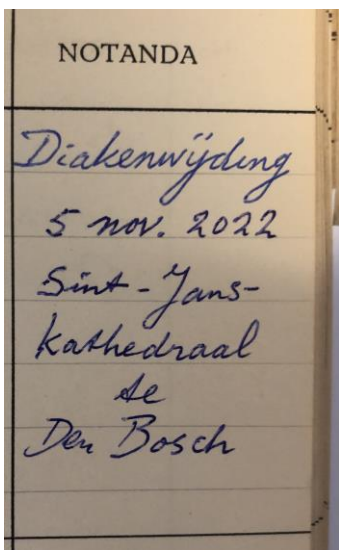 NOTANDA
Diakenwijding
5 nov. 2022
Sint-Jans-
kathedraal
te
Den Bosch